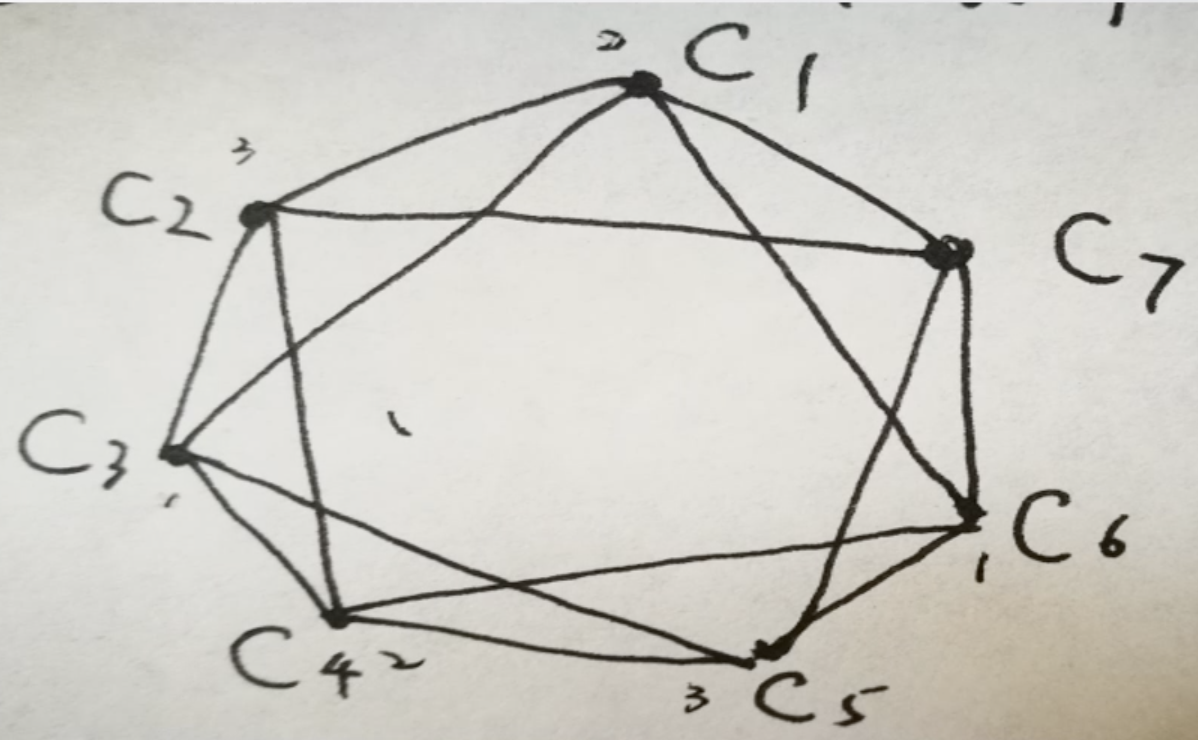 2 C1
3
C2
C7
C3
1
C6
1
C4 2
3 C5